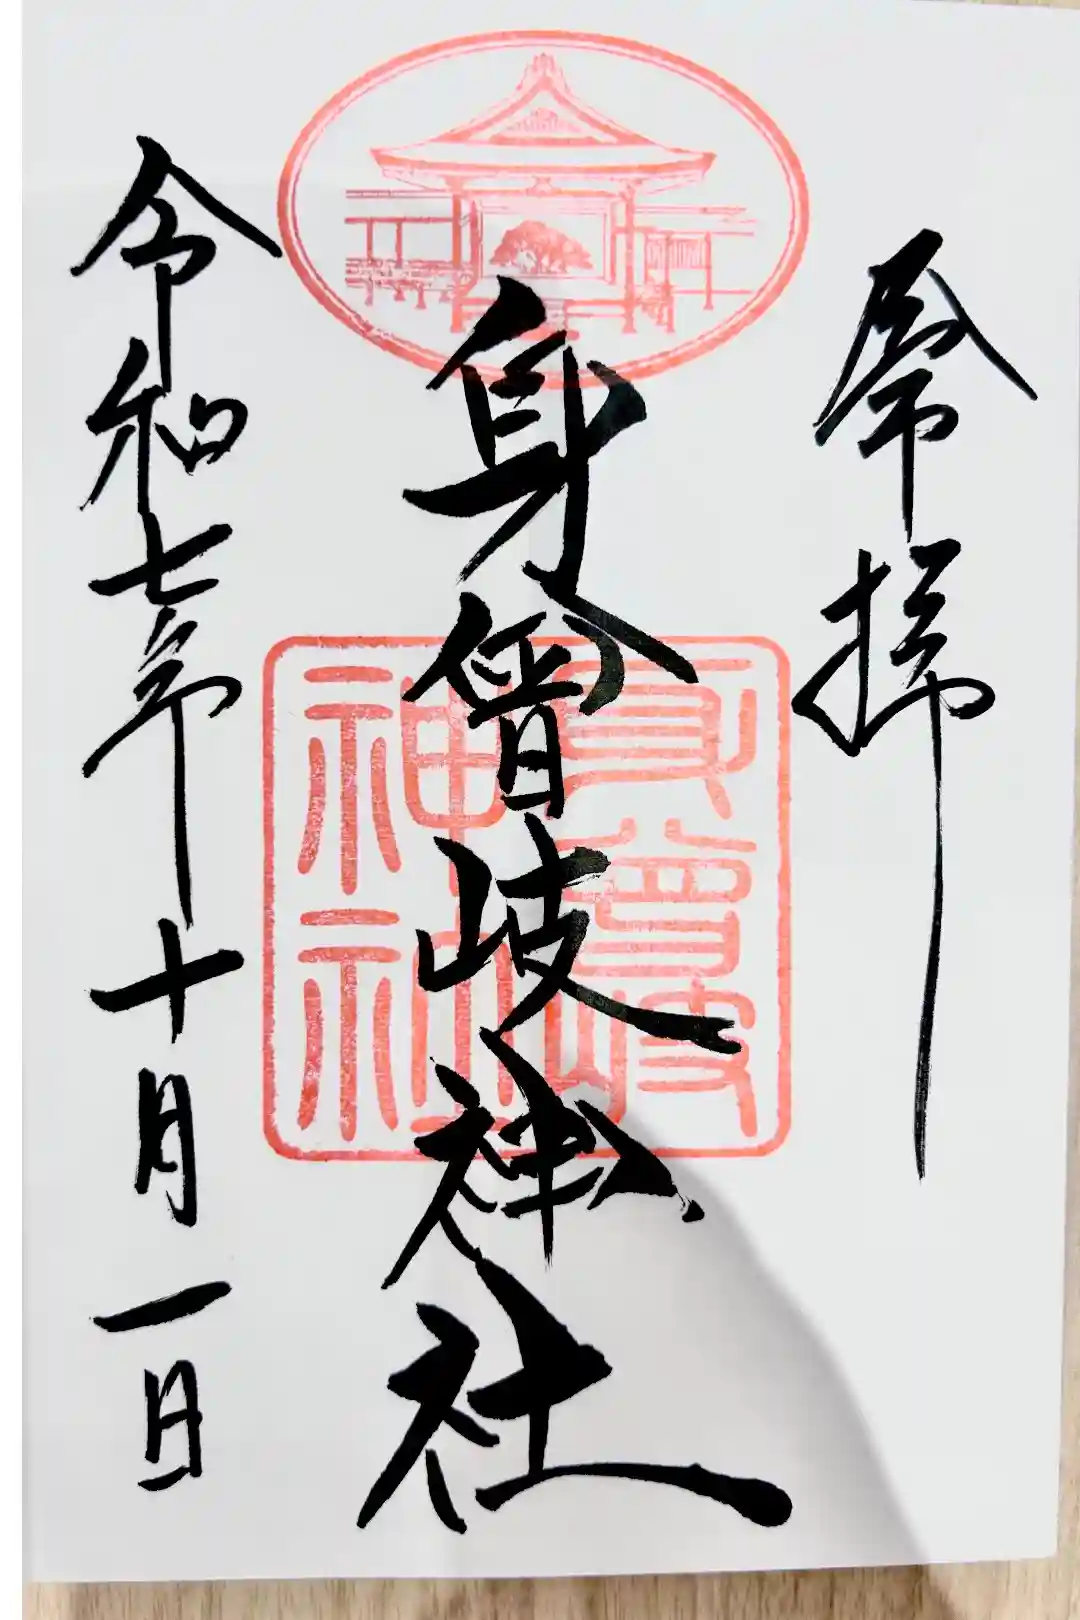 奉拝
身曾岐神社
身曾岐
神社
令和七年十月一日